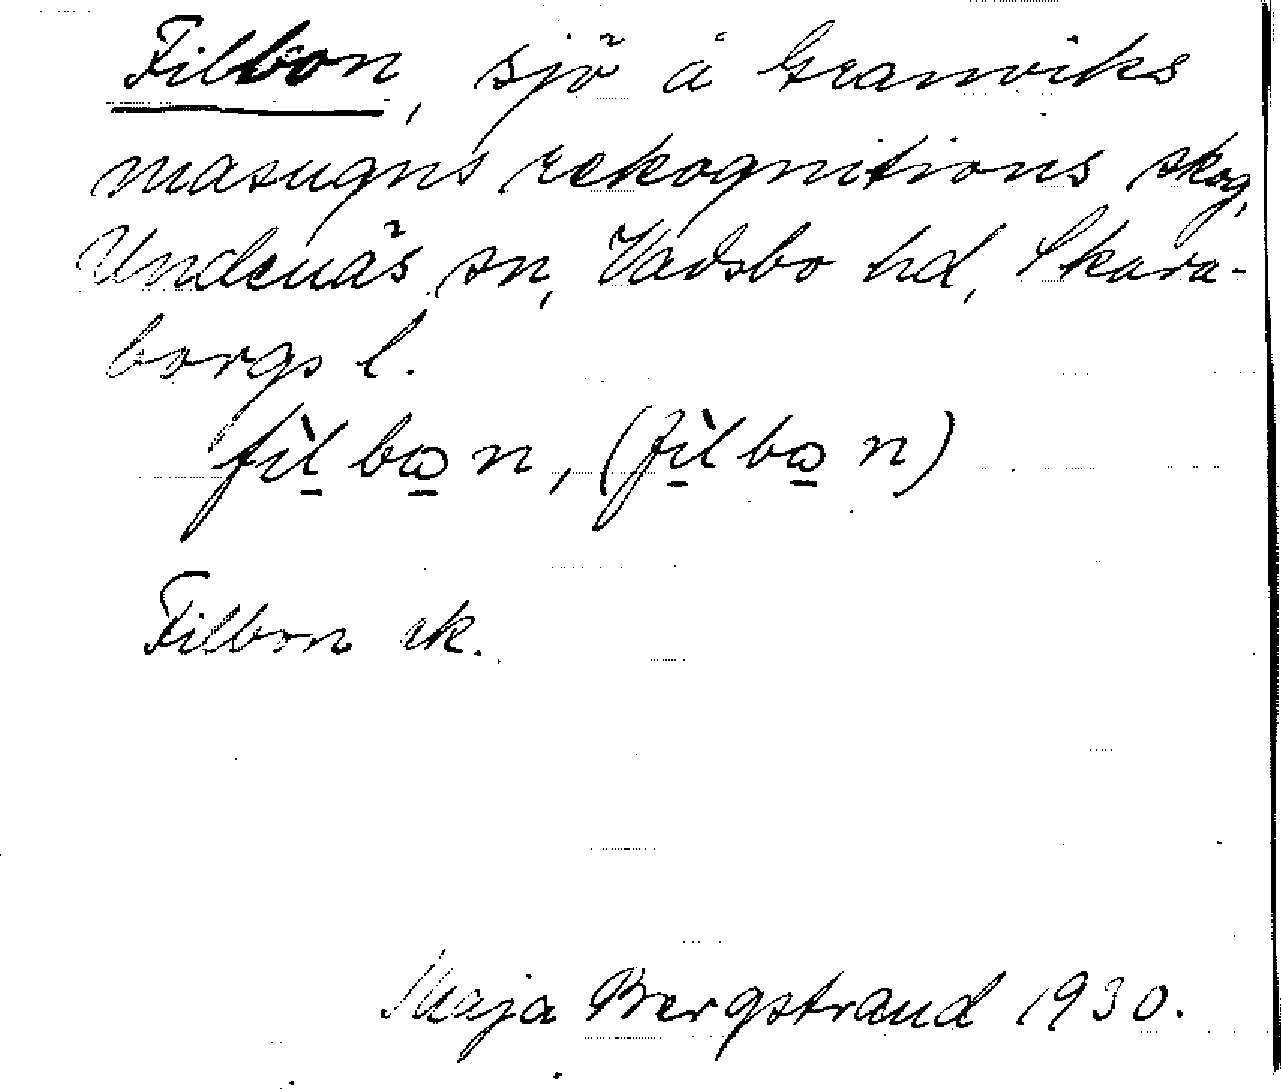 Filbon, sjö å Granviks
masugns rekognitions skog,
Undenäs sn, Vadsbo hd, Skara-
borgs l.
fìlbon, (fìlbon)
Filbon ek.
Maja Bergstrand 1930.